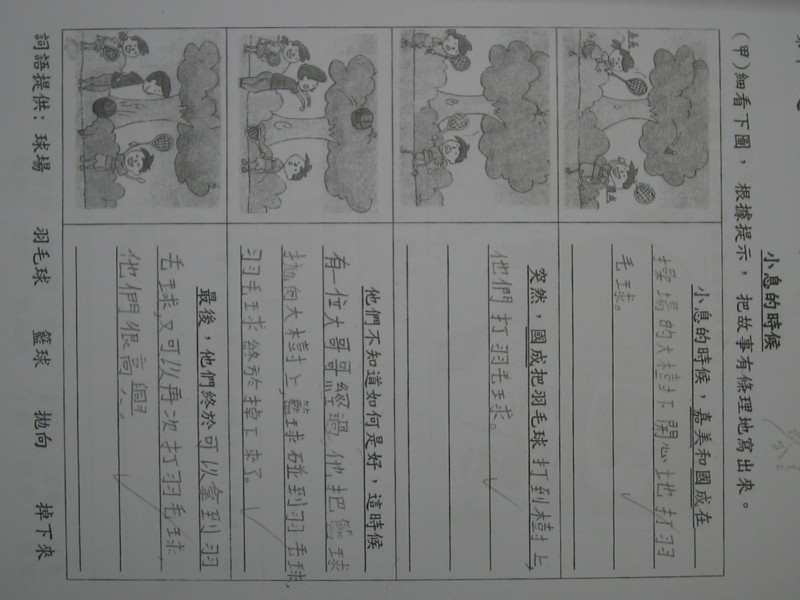 小息的時候
(甲)細看下圖，根據提示，把故事有條理地寫出來。
小息的時候，嘉美和國成在
操場的大樹下開心地打羽
毛球。
突然，國成把羽毛球打到樹上，
他們打羽毛球。
他們不知道如何是好，這時候
有一位大哥哥經過，他把籃球
拋向大樹上，籃球碰到羽毛球，
羽毛球終於掉下來了。
最後，他們終於可以拿到羽
毛球，又可以再次打羽毛球，
他們很高興。
詞語提供：球場 羽毛球 籃球 拋向 掉下來